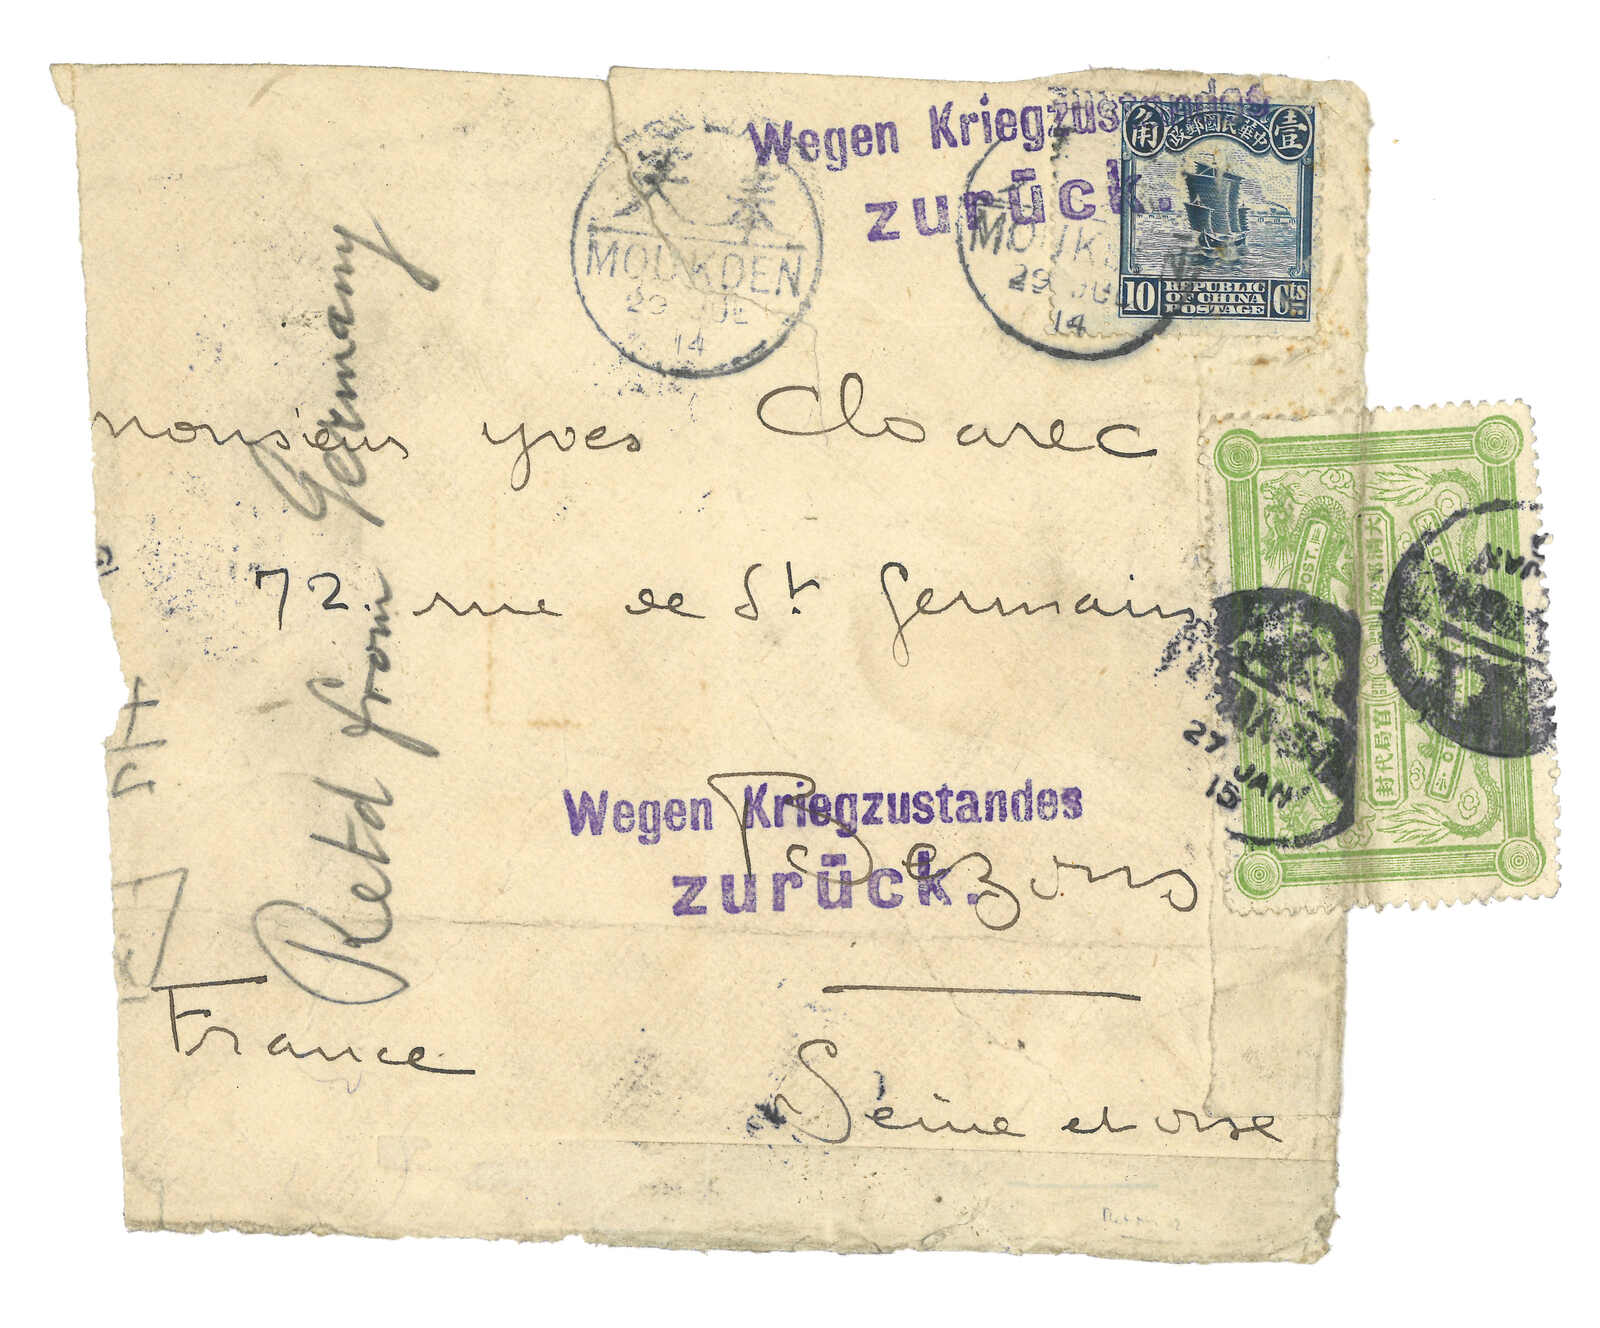 Wegen Kriegzustandes
zurück.
MOUKDEN
29 JUL
14
MOUKDEN
29 JUL
14
角 中華民國郵政 壹
10 REPUBLIC OF CHINA POSTAGE Cts
Monsieur Yves Cloarec
72. rue de St Germain
Wegen Kriegzustandes
zurück.
Bezons
France
Seine et Oise
Retd from Germany
POST.
封代局官
27
JAN
15
JAN